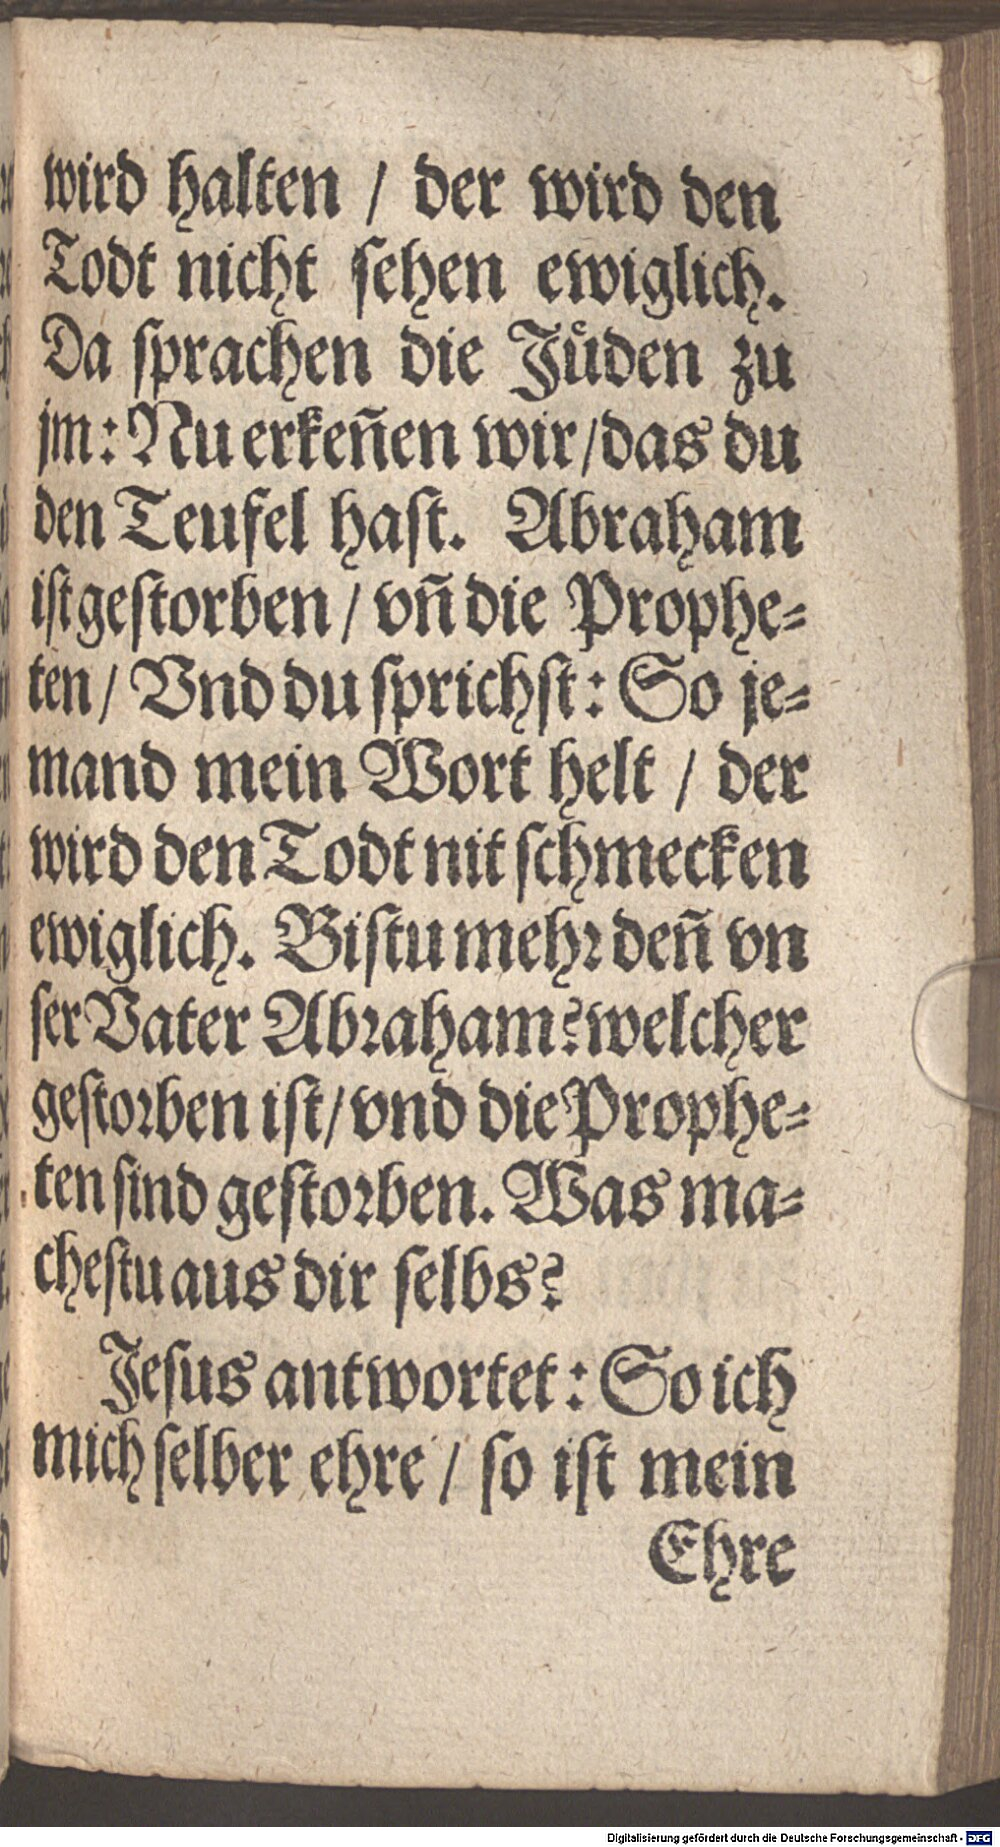 wird halten / der wird den
Todt nicht sehen ewiglich.
Da sprachen die Jüden zu
jm: Nu erkeñen wir/das du
den Teufel hast. Abraham
ist gestorben / vñ die Prophe-
ten / Vnd du sprichst: So je-
mand mein Wort helt / der
wird den Todt nit schmecken
ewiglich. Bistu mehr deñ vn
ser Vater Abraham? welcher
gestorben ist/ vnd die Prophe-
ten sind gestorben. Was ma-
chestu aus dir selbs?
Jesus antwortet: So ich
mich selber ehre / so ist mein
Ehre
Digitalisierung gefördert durch die Deutsche Forschungsgemeinschaft - DFG